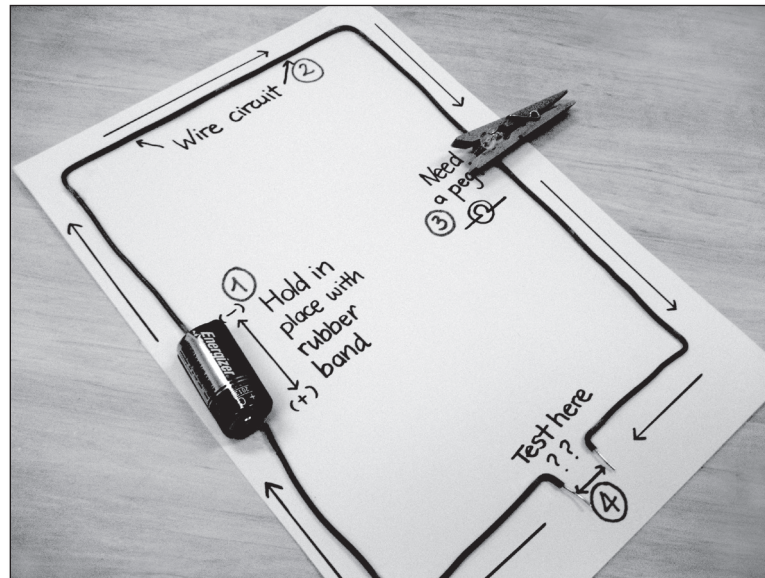 ②
Wire circuit
Need
a peg
③
①
(-)
Hold in
place with
rubber
band
(+)
Energizer
Test here
??
④